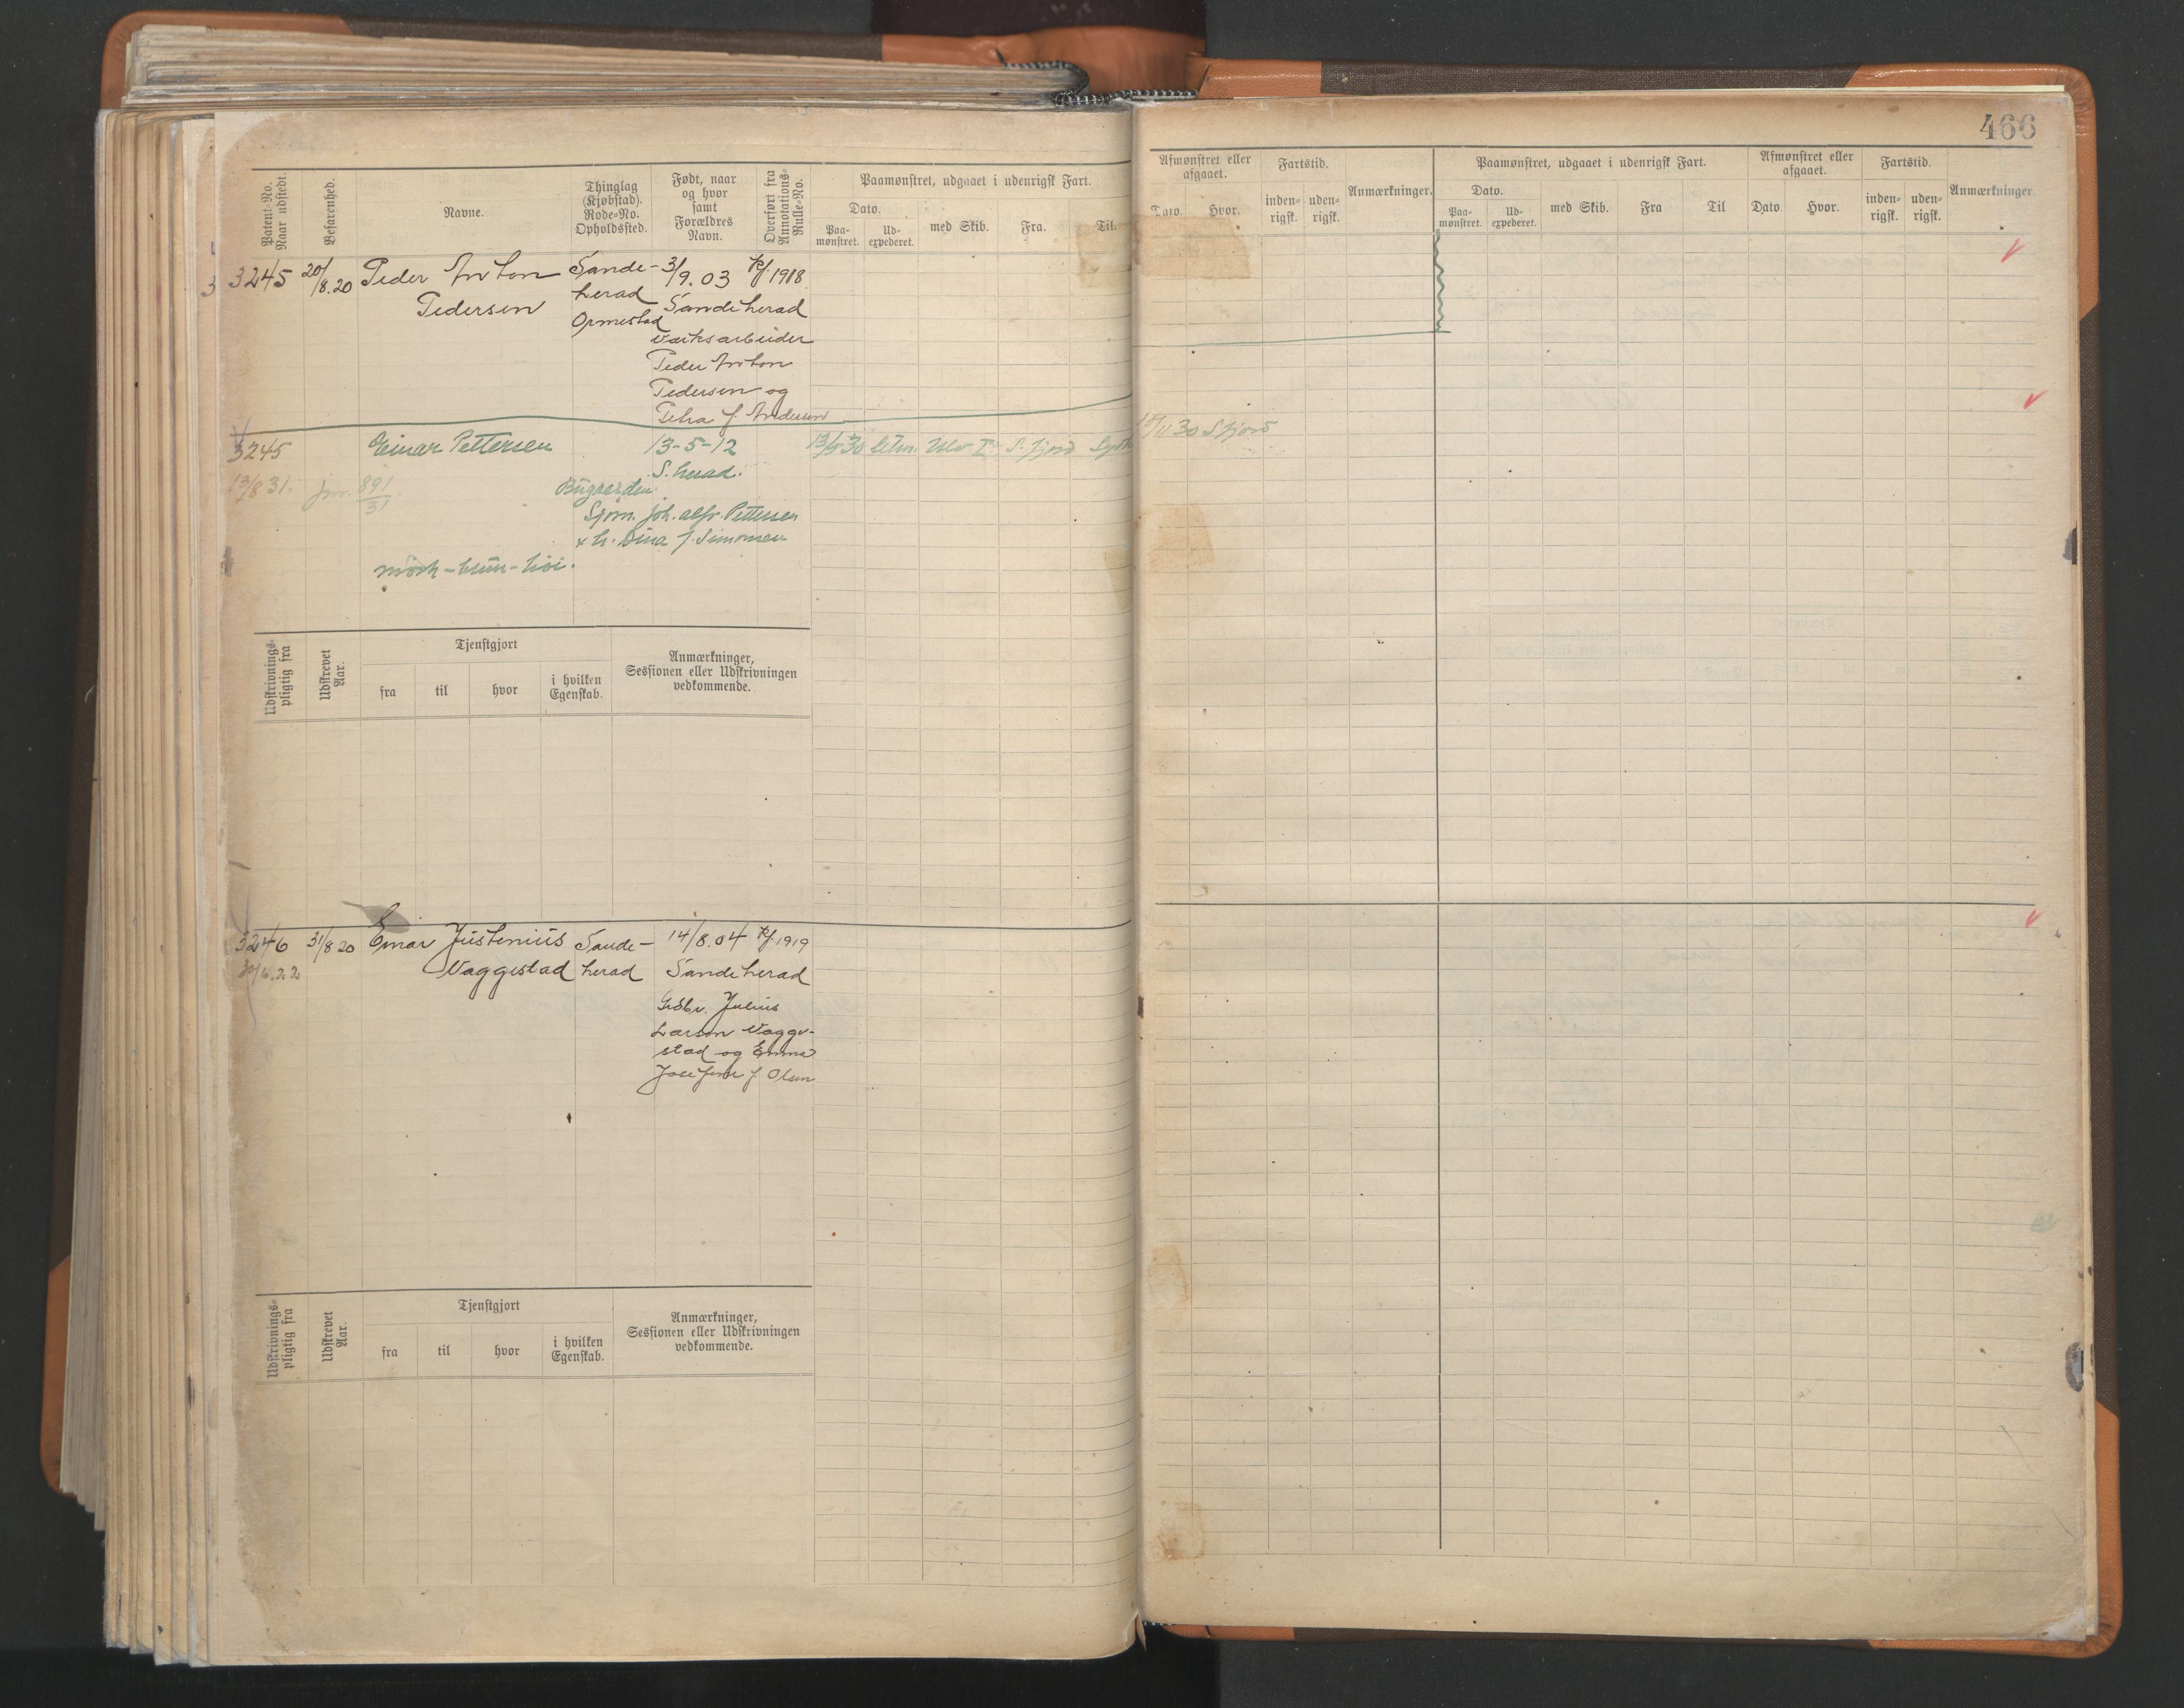 466
Patent-No. Naar udstedt.
Befarenhed.
Navne.
Thinglag (Kjøbstad). Rode-No. Opholdssted.
Født, naar og hvor samt Forældres Navn.
Overført fra Annotations-Rulle-No.
Paamønstret, udgaaet i udenrigsk Fart.
Dato.
Paa-mønstret.
Ud-expederet.
med Skib.
Fra.
Til.
Afmønstret eller afgaaet.
Dato.
Hvor.
Fartstid.
inden-rigsk.
uden-rigsk.
Anmærkninger.
Paamønstret, udgaaet i udenrigsk Fart.
Dato.
Paa-mønstret.
Ud-expederet.
med Skib.
Fra
Til
Afmønstret eller afgaaet.
Dato.
Hvor.
Fartstid.
inden-rigsk.
uden-rigsk.
Anmærkninger.
3245 20/8.20 Peder Anton Sande- 3/9.03 1918
Pedersen herad Sandeherad
Ormestad
Værksarbeider
Peder Anton
Pedersen og
f. Andersen
3245 Einar Pettersen 13-5-12 30 S. fjord
S. herad.
13/8 31. 891/31 Bugaarden
Sjøm. Joh. Alfr. Pettersen
h. Dina f. Simonsen
mörk-brun-höi.
11 30 Sfjord
Udskrivnings-pligtig fra
Udskrevet Aar.
Tjenstgjort
fra
til
hvor
i hvilken Egenskab.
Anmærkninger,
Sessionen eller Udskrivningen
vedkommende.
3246 31/8 20 Einar Justenius Sande- 14/8.04 1919
6.22 Vaggestad herad Sandeherad
Gdbr. Julius
Larsen Vagge-
stad og Emma
Josefine f. Olsen
Udskrivnings-pligtig fra
Udskrevet Aar.
Tjenstgjort
fra
til
hvor
i hvilken Egenskab.
Anmærkninger,
Sessionen eller Udskrivningen
vedkommende.